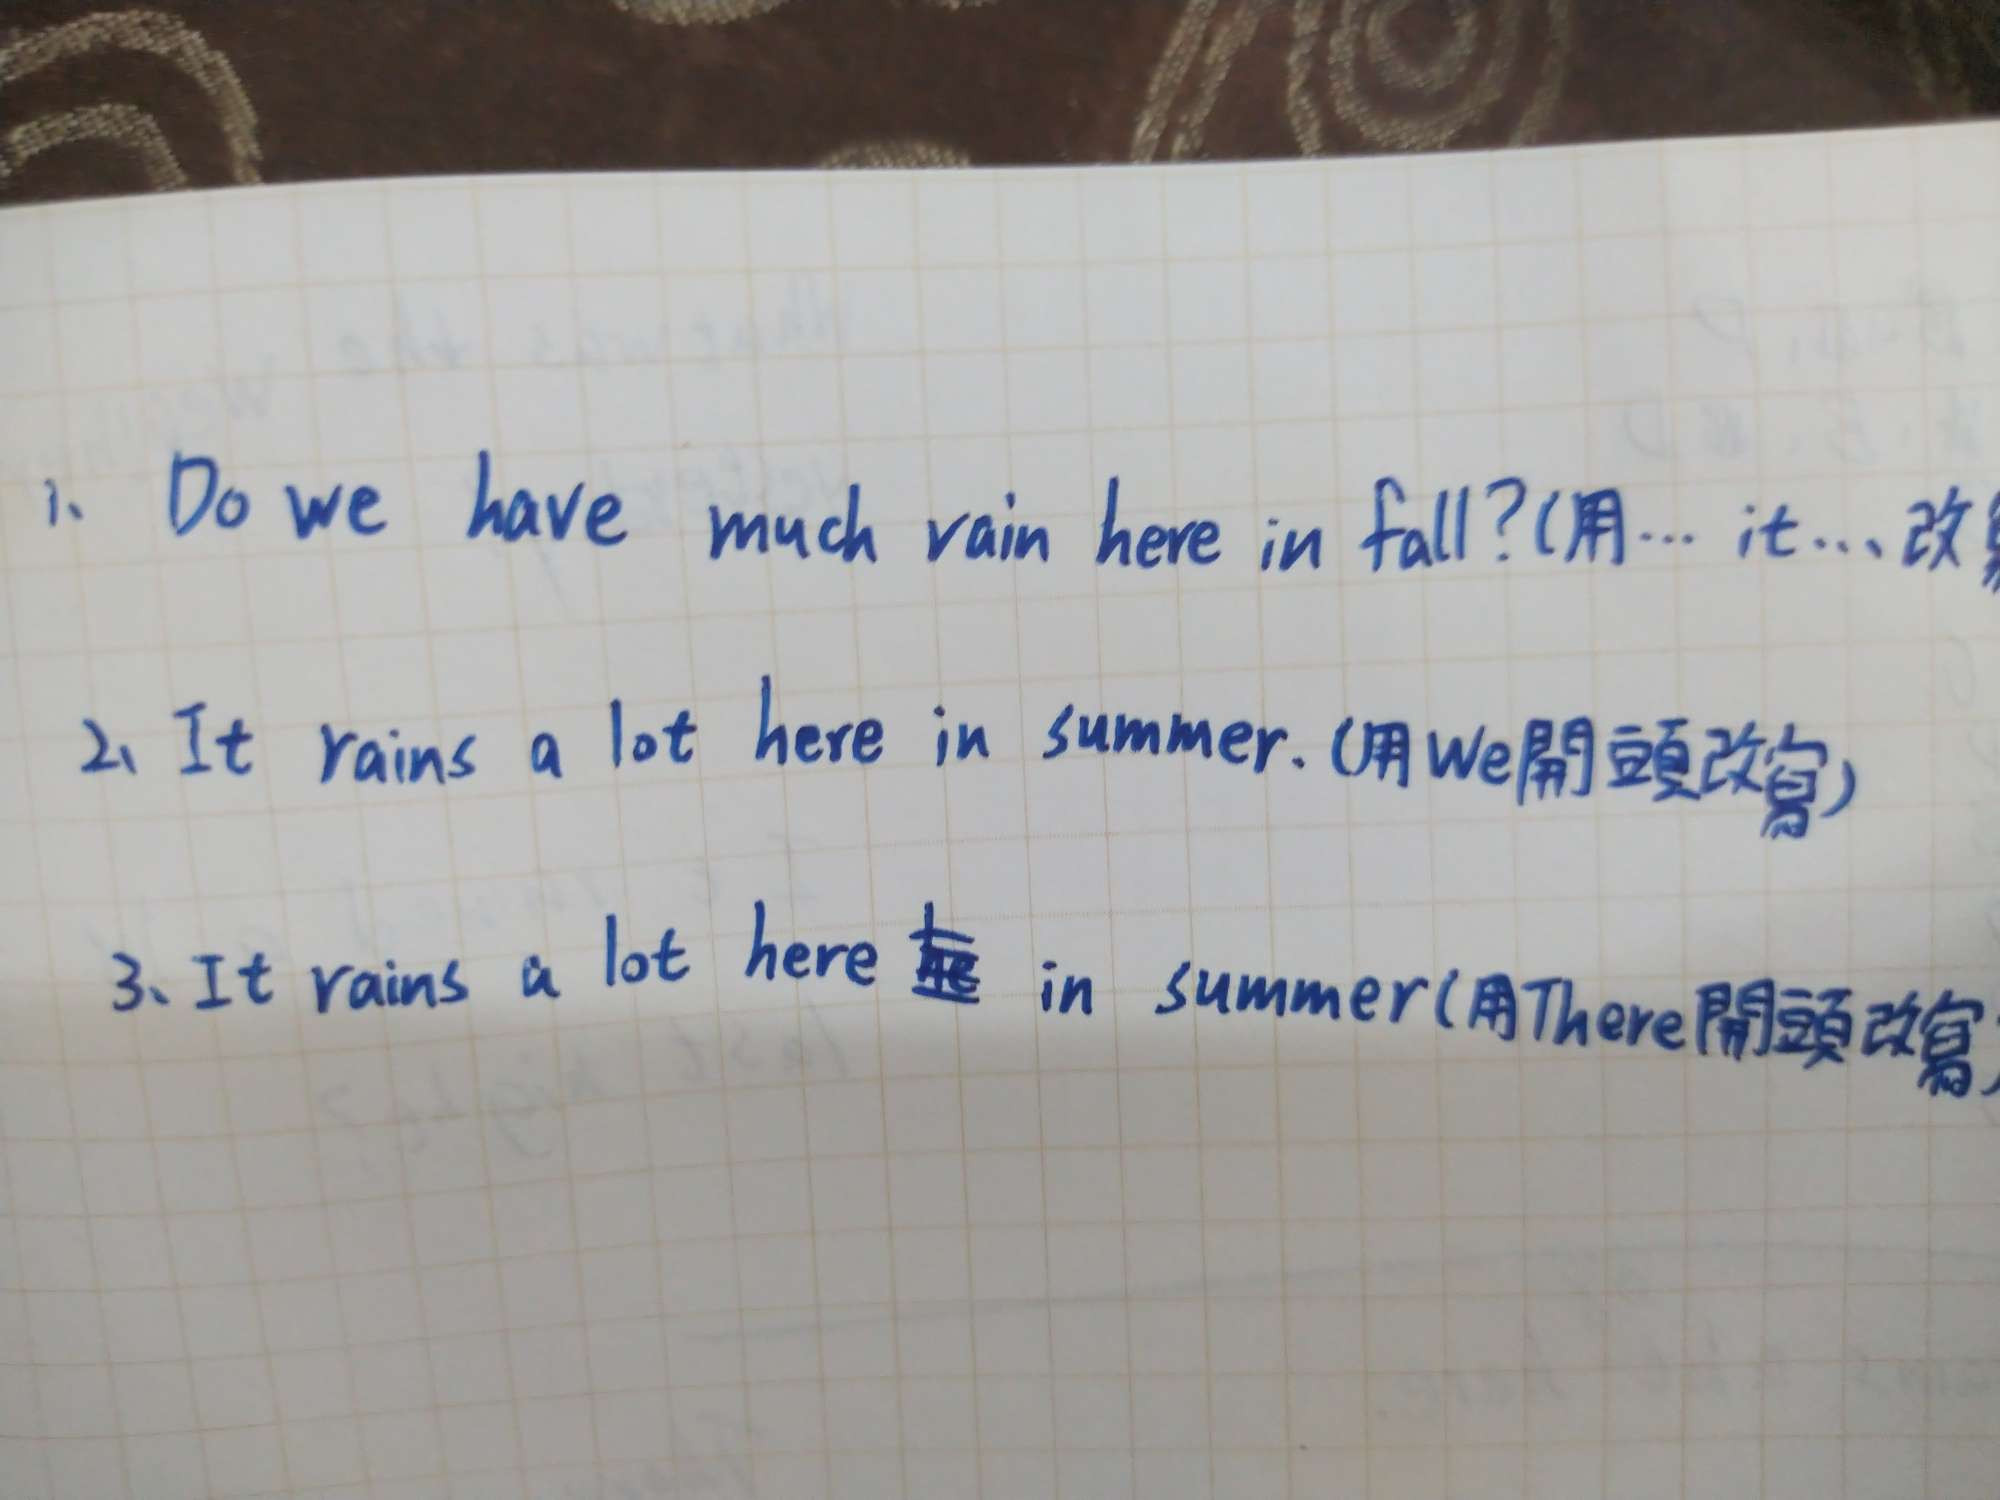 1、Do we have much rain here in fall?(用... it...改寫
2、It rains a lot here in summer.(用We開頭改寫)
3、It rains a lot here in summer(用There開頭改寫)